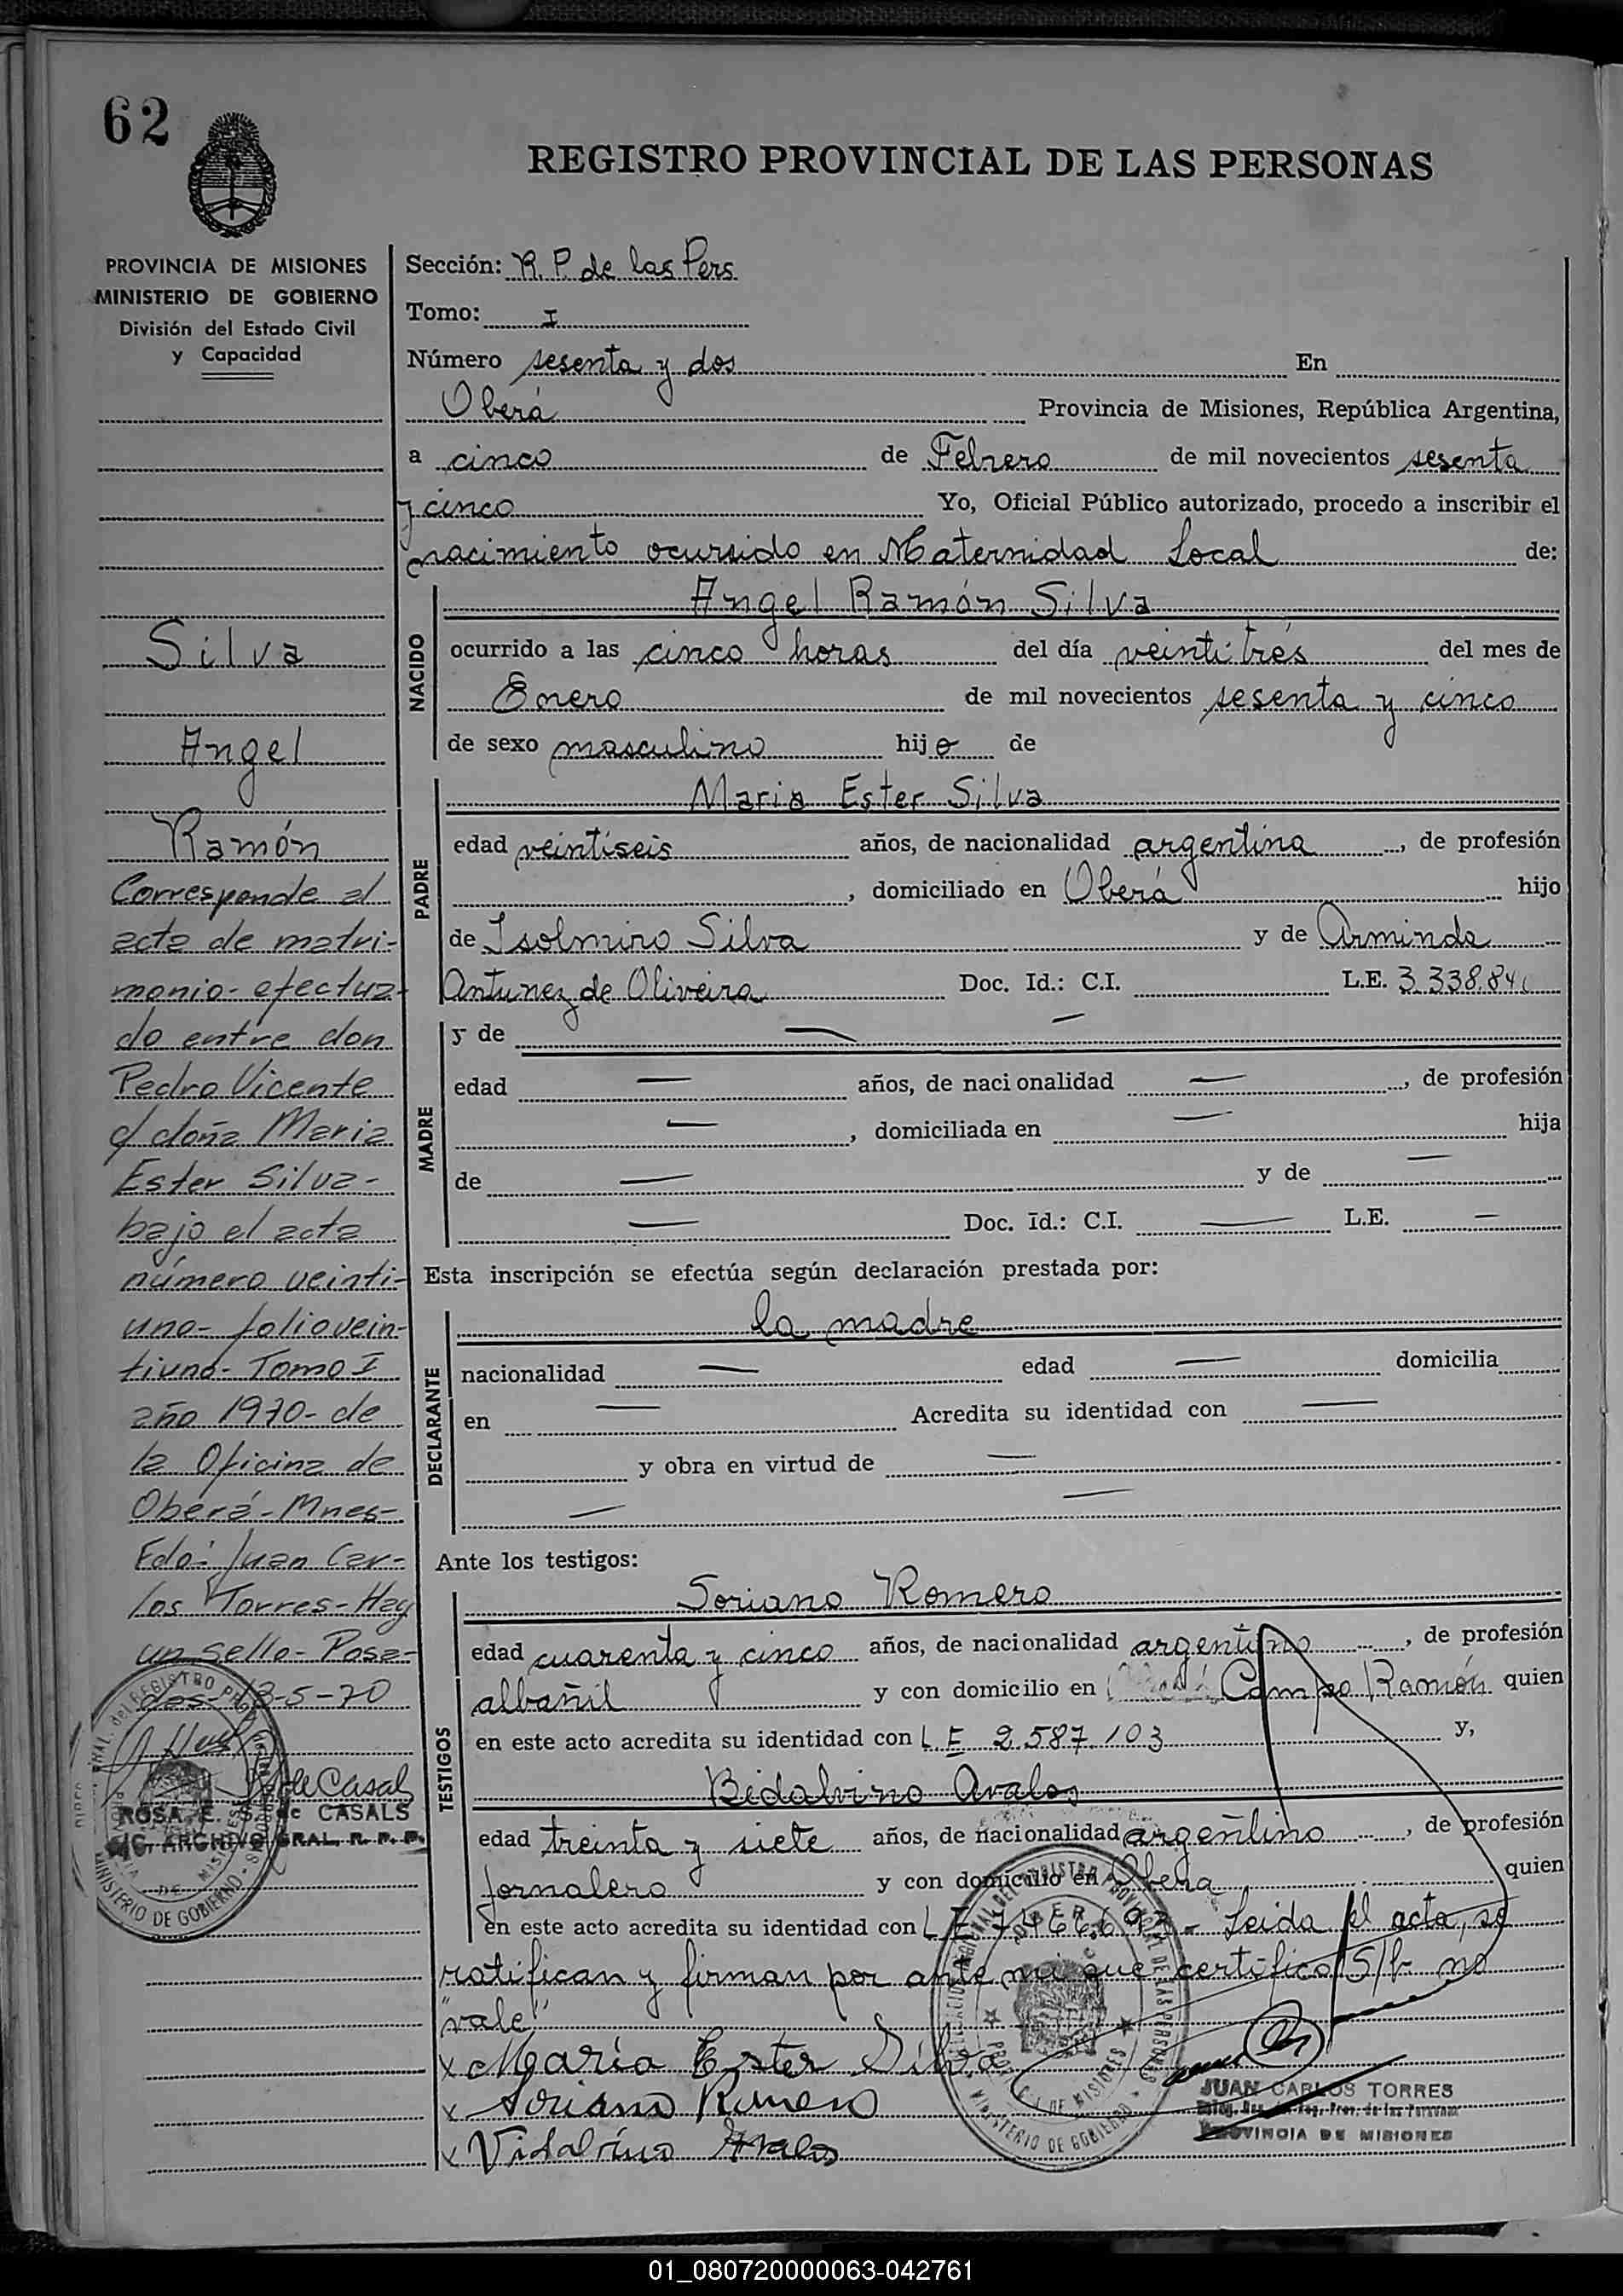 62
REGISTRO PROVINCIAL DE LAS PERSONAS
PROVINCIA DE MISIONES
MINISTERIO DE GOBIERNO
División del Estado Civil
y Capacidad
Silva
Angel
Ramón
Corresponde al
acta de matri-
monio- efectua-
do entre don
Pedro Vicente
c/ doña Maria
Ester Silva-
bajo el acta
número veinti-
uno- folio vein-
tiuno- Tomo I
año 1970- de
la Oficina de
Oberá- Mnes-
Fdo: Juan Car-
los Torres- Hay
un sello- Posa-
das- 13-5-70
de Casals
ROSA E. S. de CASALS
A/C. ARCHIVO GRAL. R. P. P.
Sección: R. P. de las Pers
Tomo: I
Número sesenta y dos En
Oberá Provincia de Misiones, República Argentina,
a cinco de Febrero de mil novecientos sesenta
y cinco Yo, Oficial Público autorizado, procedo a inscribir el
nacimiento ocurrido en Maternidad Local de:
NACIDO
Angel Ramón Silva
ocurrido a las cinco horas del día veintitrés del mes de
Enero de mil novecientos sesenta y cinco
de sexo masculino hijo de
PADRE
Maria Ester Silva
edad veintiseis años, de nacionalidad argentina, de profesión
, domiciliado en Oberá hijo
de Isolmiro Silva y de Arminda
Antunez de Oliveira Doc. Id.: C.I. L.E. 3.338.84
MADRE
y de —
edad — años, de nacionalidad —, de profesión
—, domiciliada en — hija
de — y de —
— Doc. Id.: C.I. — L.E. —
Esta inscripción se efectúa según declaración prestada por:
DECLARANTE
la madre
nacionalidad — edad — domicilia
en — Acredita su identidad con —
y obra en virtud de —
—
Ante los testigos:
TESTIGOS
Soriano Romero
edad cuarenta y cinco años, de nacionalidad argentino, de profesión
albañil y con domicilio en Campo Ramón quien
en este acto acredita su identidad con L E 2.587.103 y,
Bidalvino Avalos
edad treinta y siete años, de nacionalidad argentino, de profesión
jornalero y con domicilio en Oberá quien
en este acto acredita su identidad con L E - Leida el acta, se
ratifican y firman por ante mi que certifico S/b no
"vale"
x Maria Ester Silva
x Soriano Romero
x Vidalvino Avalos
JUAN CARLOS TORRES
PROVINCIA DE MISIONES
01_080720000063-042761